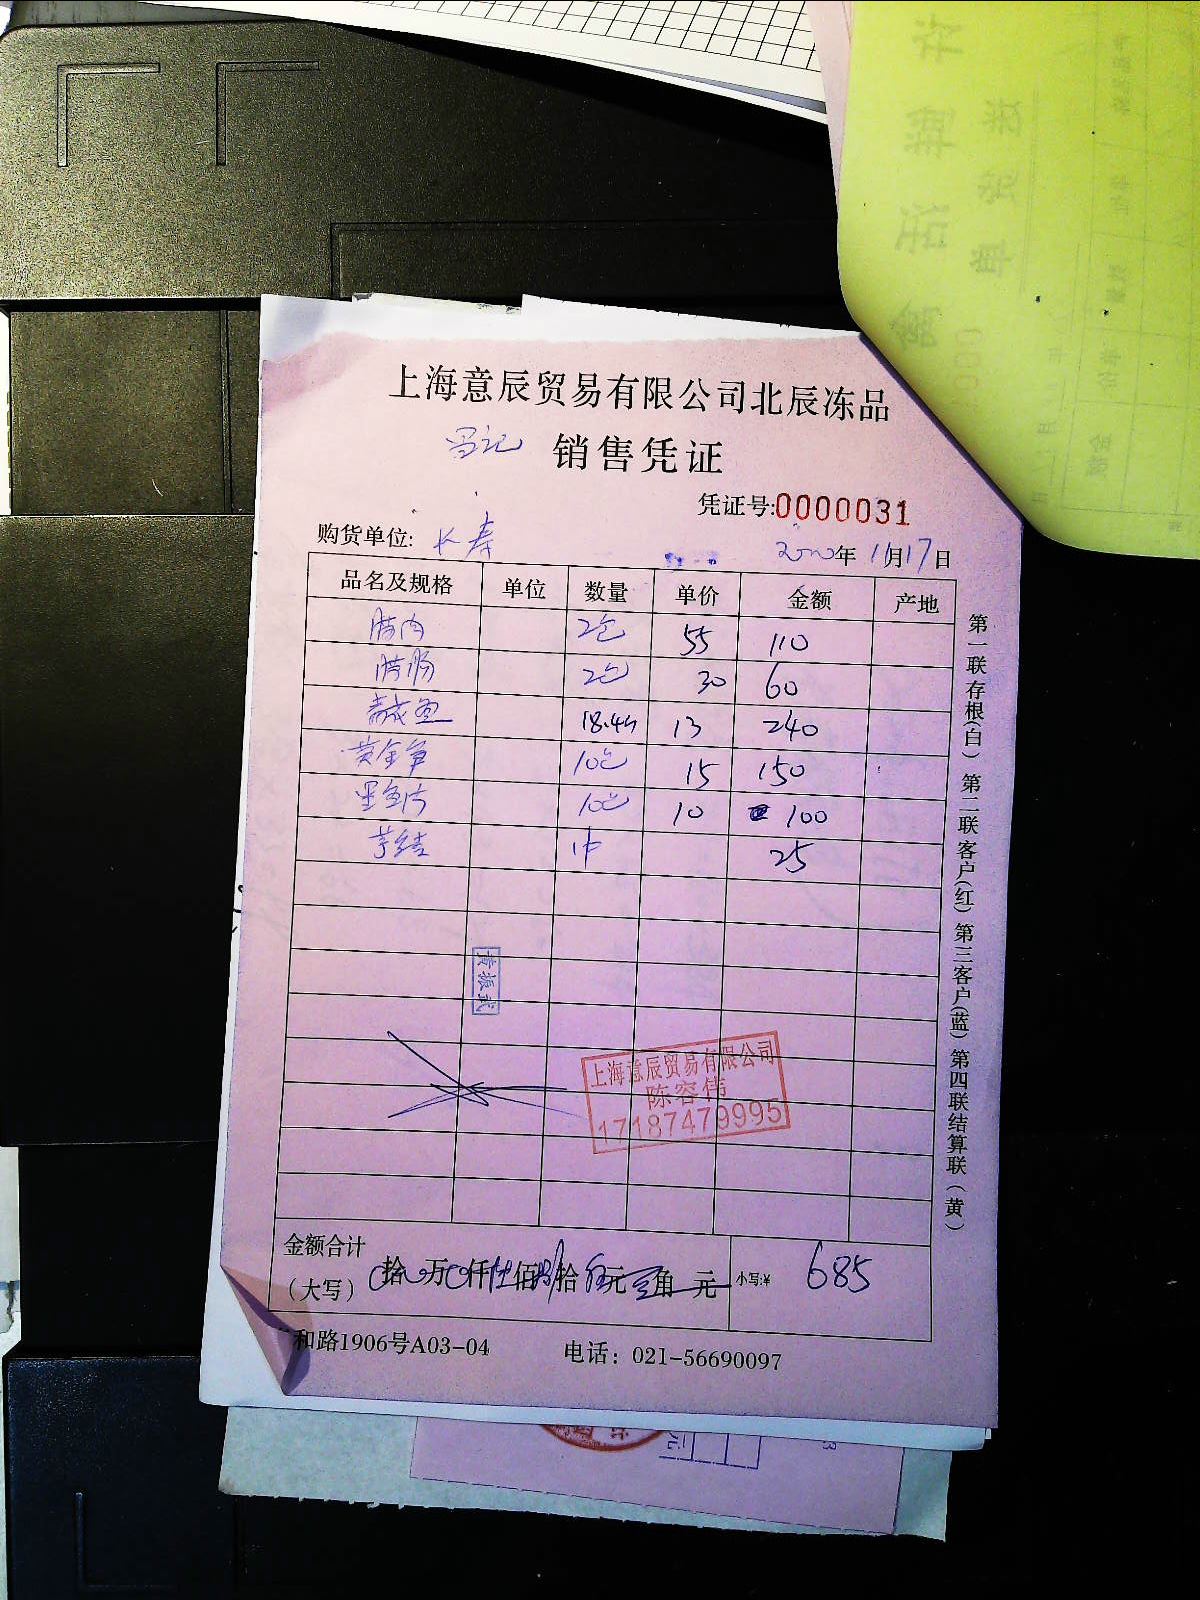 上海意辰贸易有限公司北辰冻品
冯记 销售凭证
凭证号:0000031
购货单位: 长寿 2020年 11月17日
品名及规格 单位 数量 单价 金额 产地
腊肉 2包 55 110
腊肠 2包 30 60
18.4斤 13 240
黄金 10包 15 150
墨鱼片 10包 10 100
芋结 1件 25
黄振武
上海意辰贸易有限公司
陈容伟
17187479995
金额合计
(大写) 拾 万 仟 佰 拾 元 角 元 小写:¥ 685
和路1906号A03-04 电话: 021-56690097
第一联存根(白) 第二联客户(红) 第三客户(蓝) 第四联结算联(黄)